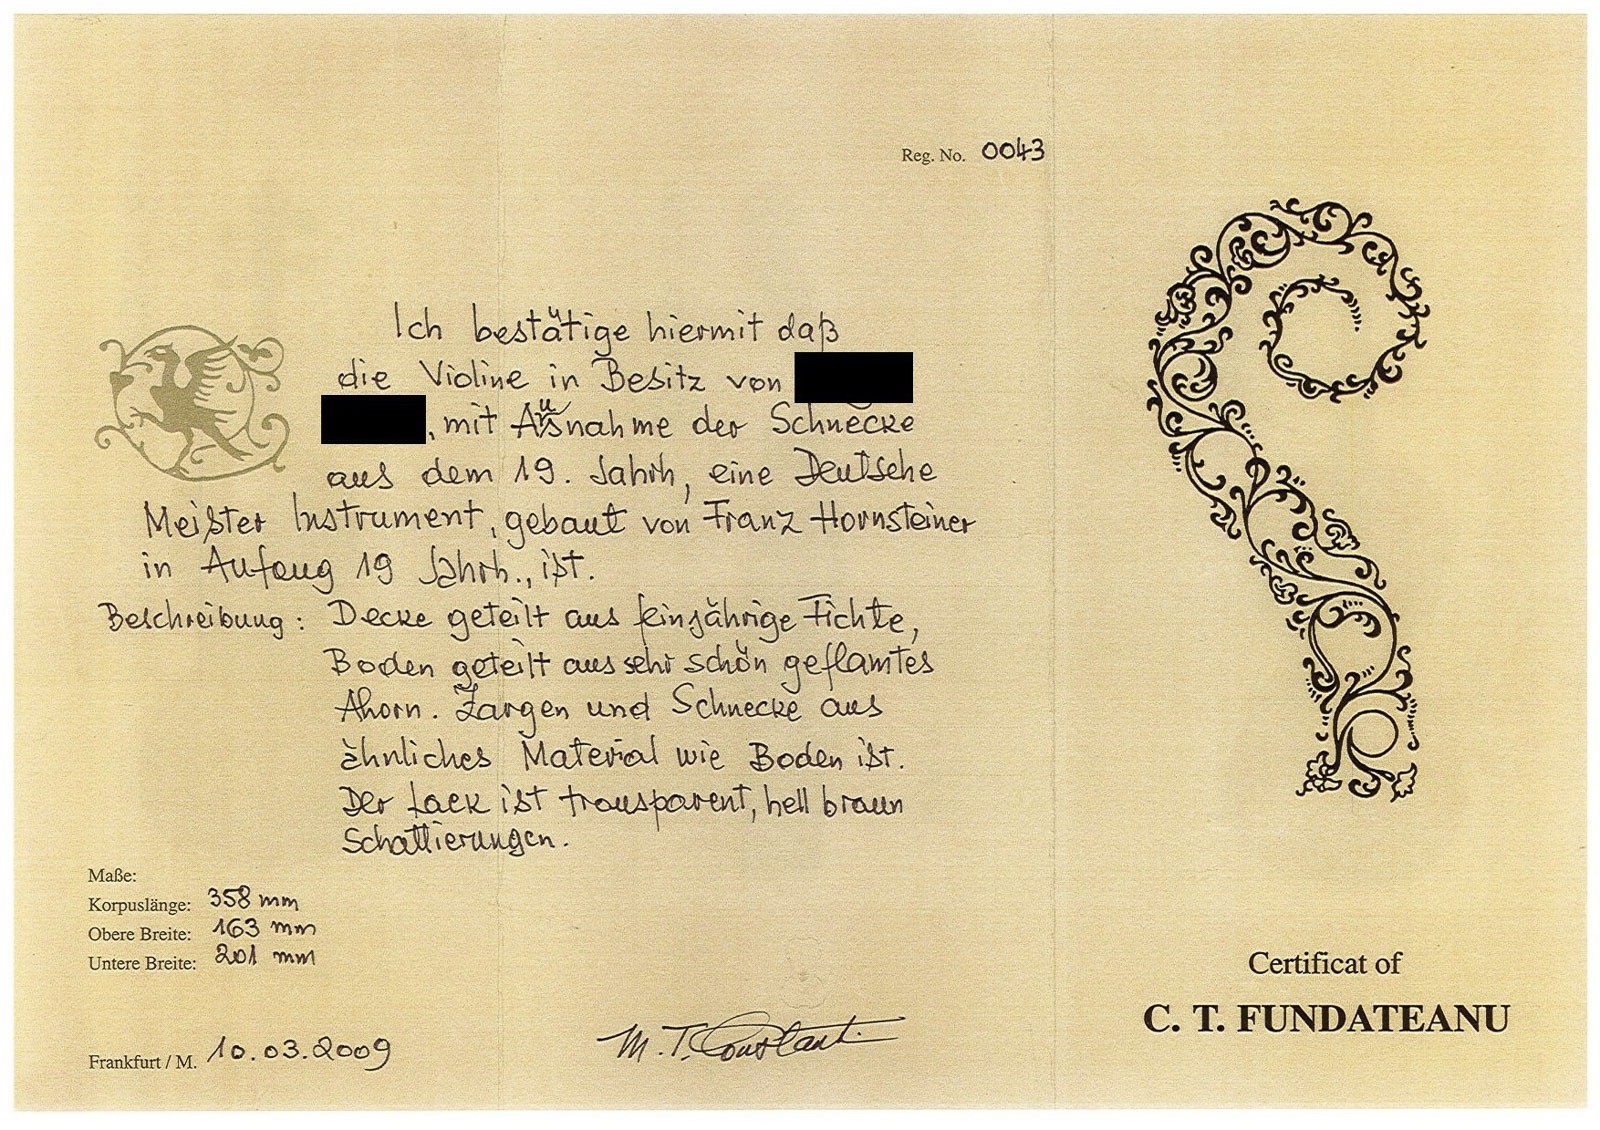 Reg. No. 0043
Ich bestätige hiermit daß
die Violine in Besitz von
, mit Ausnahme der Schnecke
aus dem 19. Jahrh, eine Deutsche
Meister Instrument, gebaut von Franz Hornsteiner
in Anfang 19 Jahrh., ist.
Beschreibung: Decke geteilt aus feinjährige Fichte,
Boden geteilt aus sehr schön geflamtes
Ahorn. Zargen und Schnecke aus
ähnliches Material wie Boden ist.
Der Lack ist transparent, hell braun
Schattierungen.
Maße:
Korpuslänge: 358 mm
Obere Breite: 163 mm
Untere Breite: 201 mm
Frankfurt / M. 10.03.2009
M. T. Constantin
Certificat of
C. T. FUNDATEANU